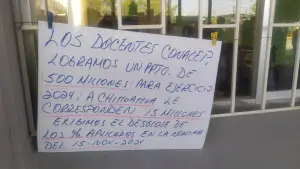 LOS DOCENTES CONACET,
LOGRAMOS UN PPTO. DE
500 MILLONES PARA EJERCICIO
2024; A CHIHUAHUA LE
CORRESPONDEN 15 MILLONES
EXIGIMOS EL DESGLOSE DE
LOS % APLICADOS EN LA NOMINA
DEL 15-NOV-2024